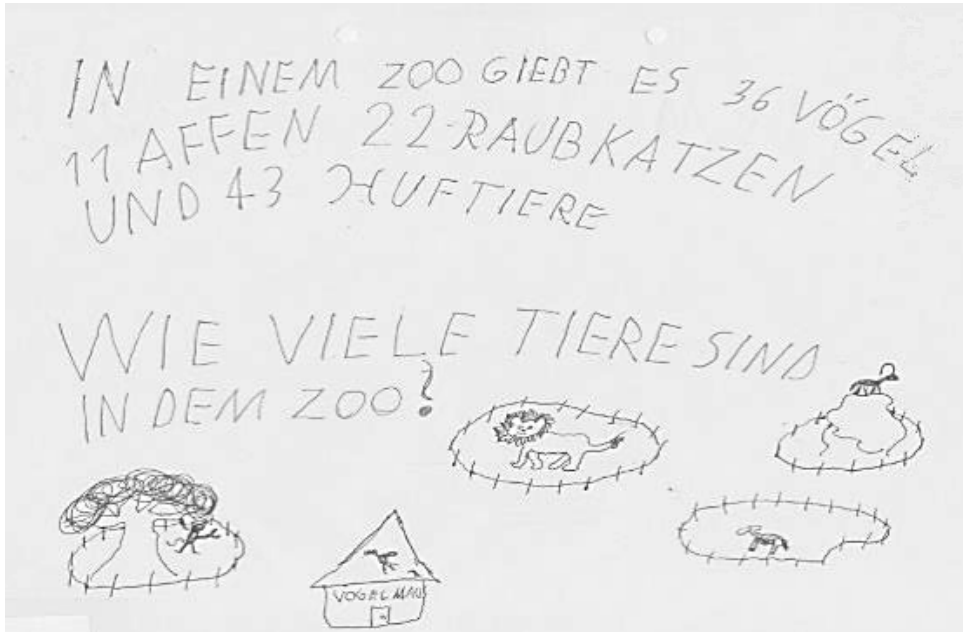 IN EINEM ZOO GIEBT ES 36 VÖGEL
11 AFFEN 22 RAUBKATZEN
UND 43 HUFTIERE
WIE VIELE TIERE SIND
IN DEM ZOO?
VOGEL